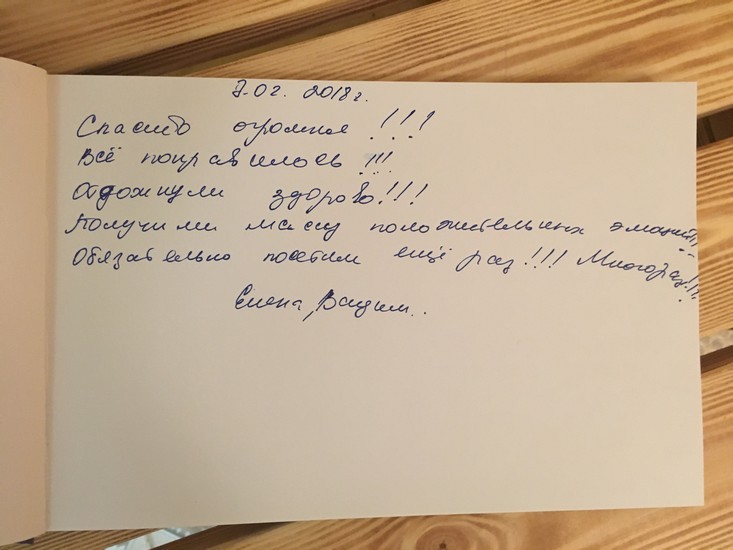 7.02. 2018г.
Спасибо огромное !!!
Всё понравилось !!!
Отдохнули здорово!!!
Получили массу положительных эмоций!!!
Обязательно посетим ещё раз!!! Много раз!!!
Елена, Вадим..